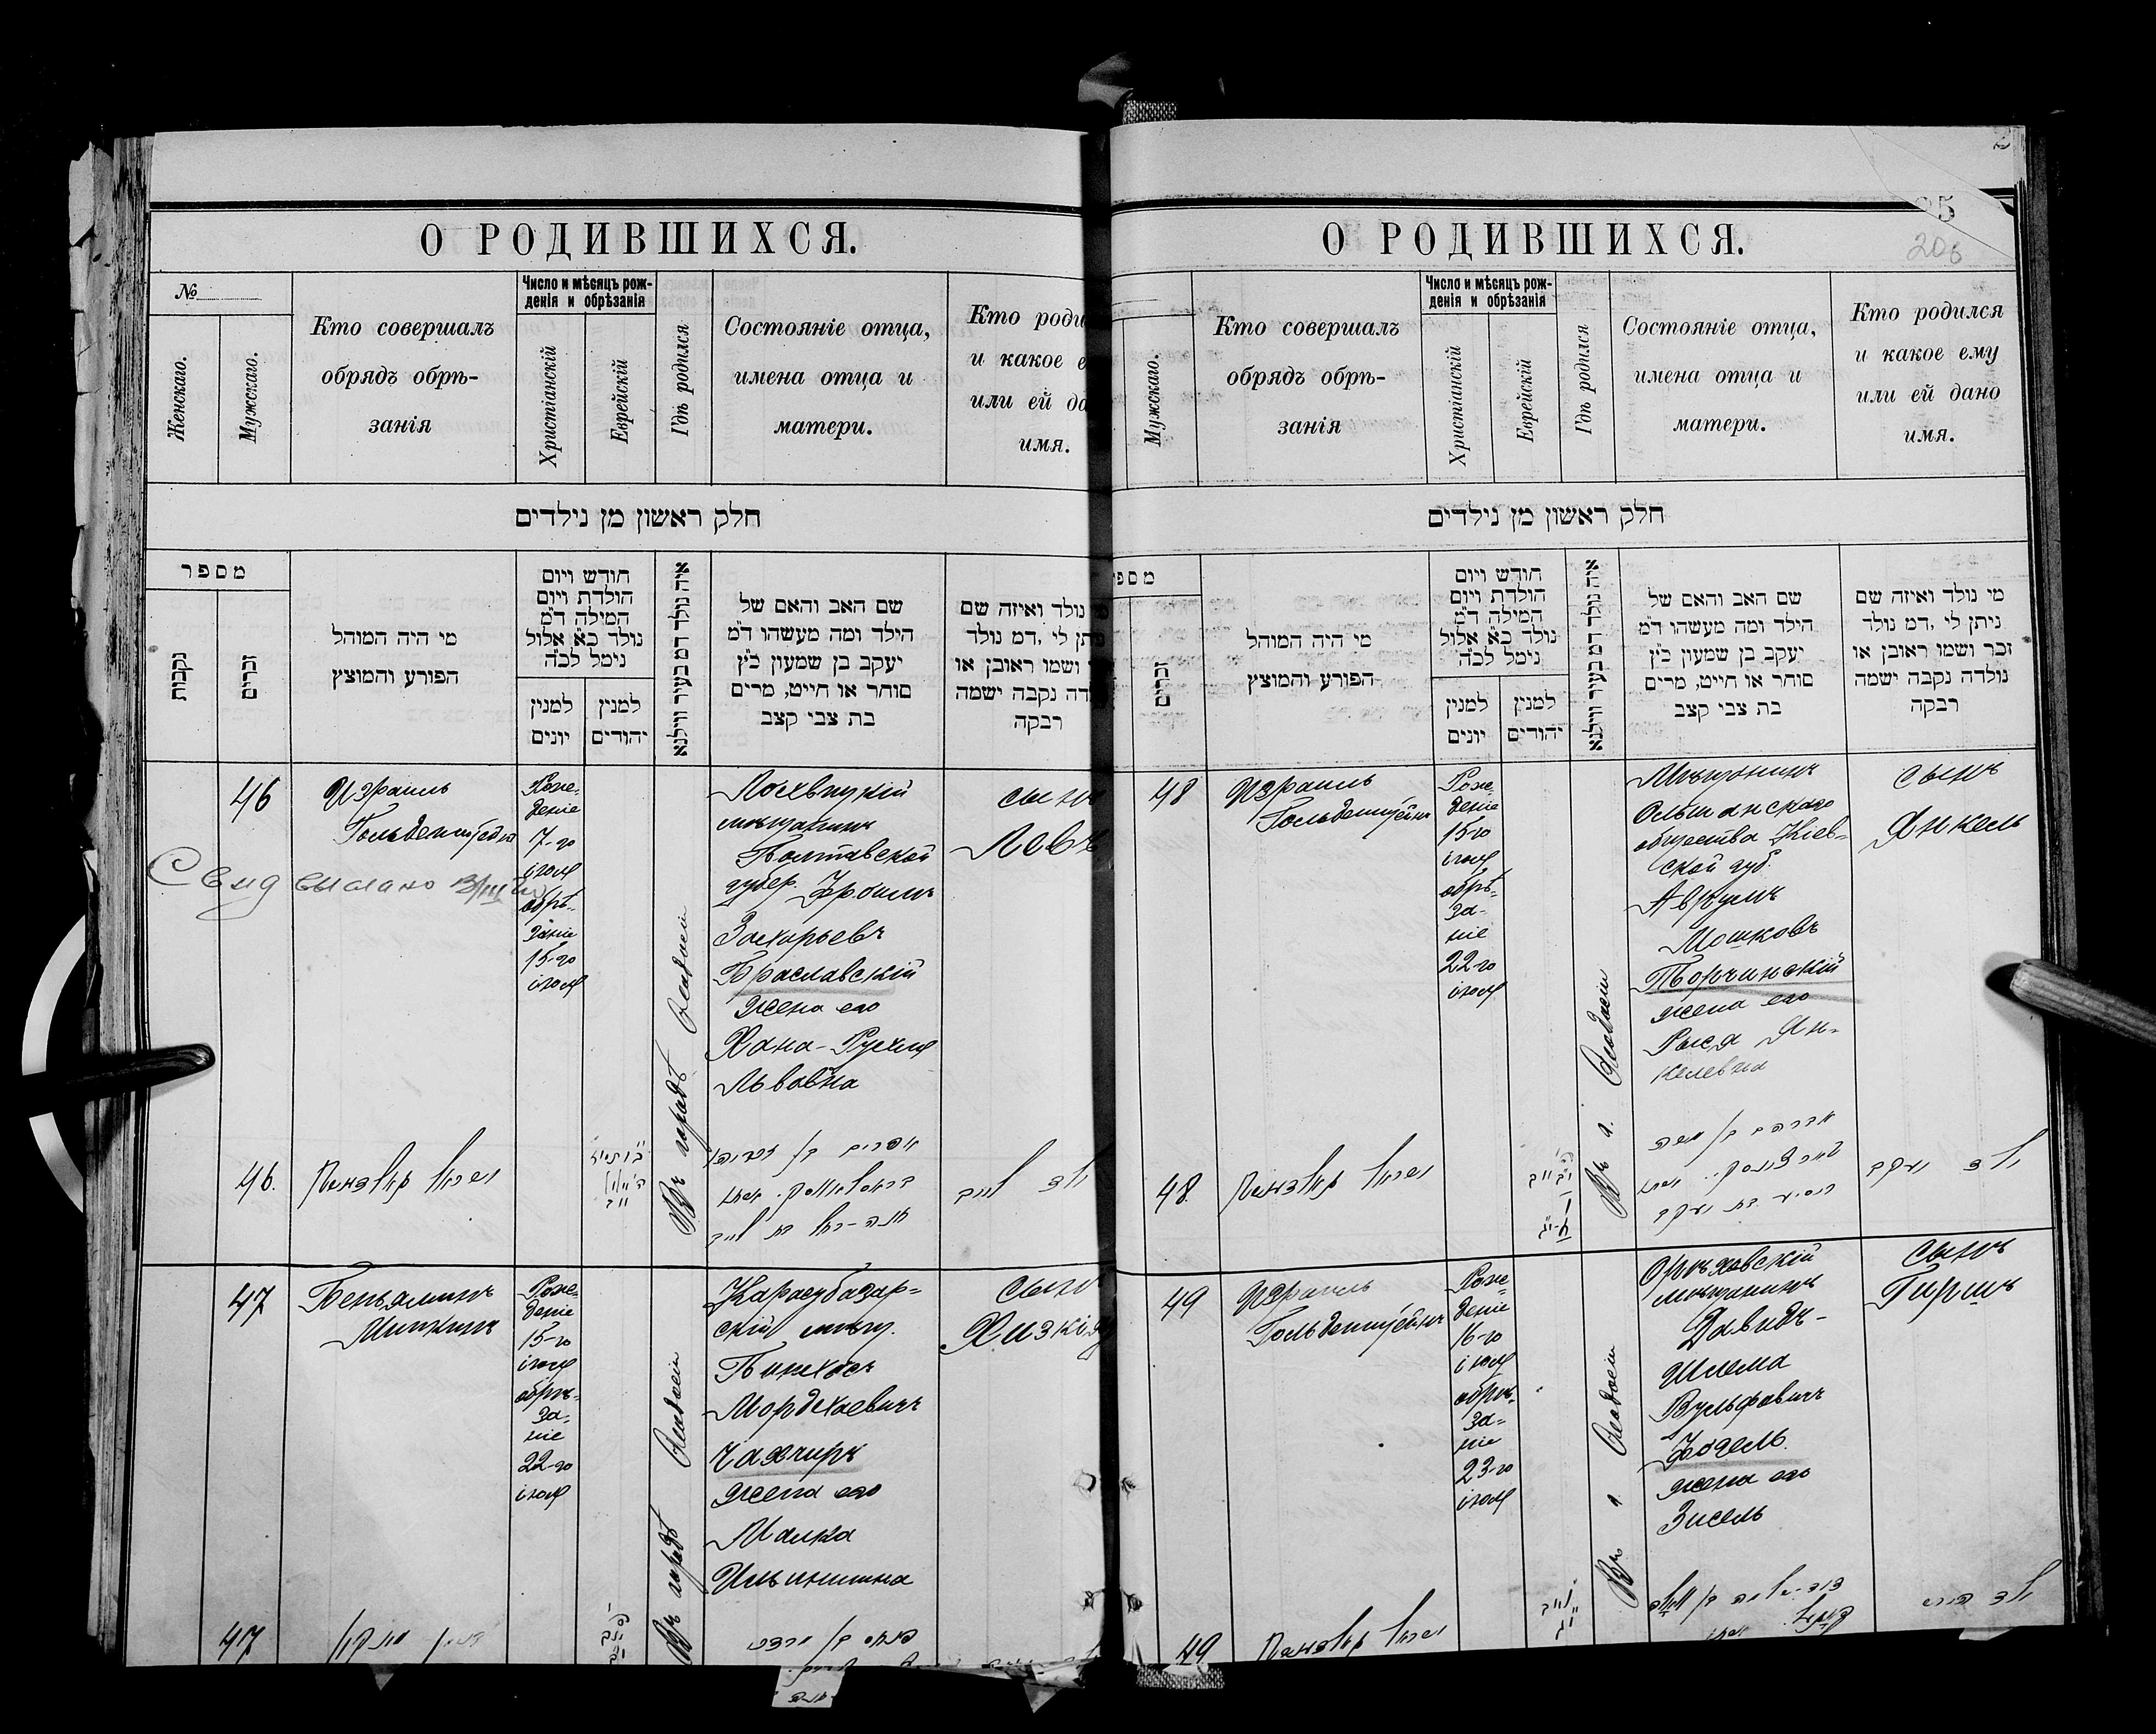 О РОДИВШИХСЯ.
№
Женскаго.
Мужскаго.
Кто совершалъ
обрядъ обрѣ-
занія
Число и мѣсяцъ рож-
денія и обрѣзанія
Христіанскій
Еврейскій
Гдѣ родился
Состояніе отца,
имена отца и
матери.
Кто роди
и какое е
или ей да
имя.
חלק ראשון מן נילדים
מספר
נקבות
זכרים
מי היה המוהל
הפורע והמוצץ
חודש ויום
הולדת ויום
המילה ד״מ
נולד כ״א אלול
נימל לכ״ה
למנין
יונים
למנין
יהודים
איה נולד דמ בעיר ווילנא
שם האב והאם של
הילד ומה מעשהו ד״מ
יעקב בן שמעון כ״ץ
סוחר או חייט, מרים
בת צבי קצב
נולד ואיזה שם
תן לי ,דמ נולד
ושמו ראובן או
דה נקבה ישמה
רבקה
46
Израиль
Гольденштейн
Свид выслано
Рож-
деніе
7-го
іюля
обрѣ-
заніе
15-го
іюля
Въ городѣ Ѳеодосіи
Лохвицкій
мѣщанинъ
Полтавской
губер. Эфроимъ
Захарьевъ
Браславскій
жена его
Хана-Рухля
Львовна
сынъ
Левъ
46.
ישראל
ולד לייב
47
Беньяминъ
Миткинъ
Рож-
деніе
15-го
іюля
обрѣ-
за-
ніе
22-го
іюля
Въ городѣ Ѳеодосіи
Карасубазар-
скій мѣщ.
Пинхосъ
Мордхаевичъ
Чахчиръ
жена его
Малка
Ильинишна
сынъ
Хизкія
47
О РОДИВШИХСЯ.
25
206
Мужскаго.
Кто совершалъ
обрядъ обрѣ-
занія
Число и мѣсяцъ рож-
денія и обрѣзанія
Христіанскій
Еврейскій
Гдѣ родился
Состояніе отца,
имена отца и
матери.
Кто родился
и какое ему
или ей дано
имя.
חלק ראשון מן נילדים
מספ
זכרים
מי היה המוהל
הפורע והמוצץ
חודש ויום
הולדת ויום
המילה ד״מ
נולד כ״א אלול
נימל לכ״ה
למנין
יונים
למנין
יהודים
איה נולד דמ בעיר ווילנא
שם האב והאם של
הילד ומה מעשהו ד״מ
יעקב בן שמעון כ״ץ
סוחר או חייט, מרים
בת צבי קצב
מי נולד ואיזה שם
ניתן לי ,דמ נולד
זכר ושמו ראובן או
נולדה נקבה ישמה
רבקה
48
Израиль
Гольденштейнъ
Рож-
деніе
15-го
іюля
обрѣ-
за-
ніе
22-го
іюля
Въ г. Ѳеодосіи
Мѣщанинъ
Ольшанскаго
общества Кіев-
ской губ.
Аврумъ
Мошковъ
Порчинскій
жена его
Рыся Ян-
келевна
сынъ
Янкель
48.
ישראל
אברהם בן משה
ולד יעקב
49
Израиль
Гольденштейнъ
Рож-
деніе
16-го
іюля
обрѣ-
за-
ніе
23-го
іюля
Въ г. Ѳеодосіи
Орѣховскій
мѣщанинъ
Давидъ-
Шлема
Вульфовичъ
жена его
Зисель
сынъ
Гиршъ
49
ישראל
ולד הירש